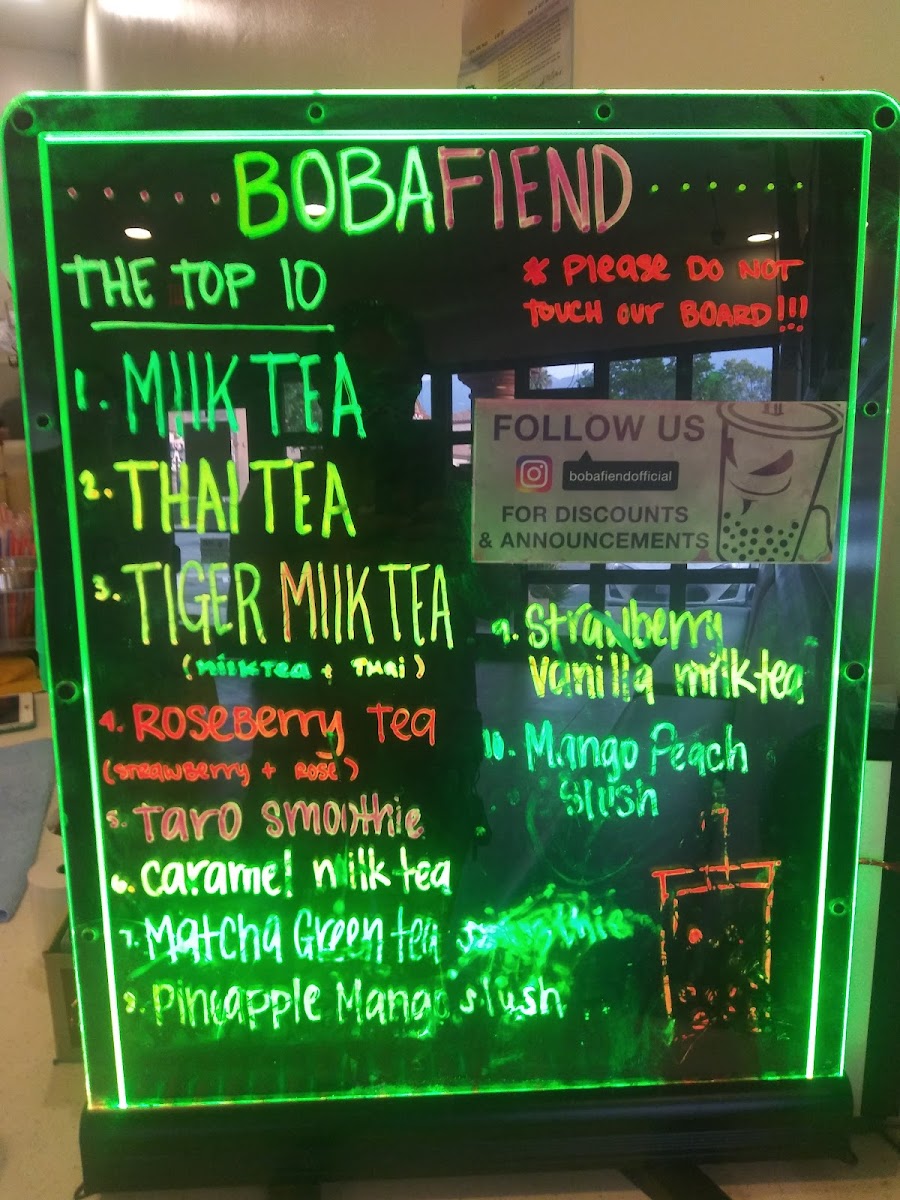 BOBAFIEND
THE TOP 10
* Please DO NOT
TOUCH our BOARD!!!
1. MIlK TEA
2. THAI TEA
3. TIGER MIlK TEA
(milk TEA + THAi)
4. ROSEBerry Tea
(STrawBerry + Rose)
5. Taro smoothie
6. caramel milk tea
7. Matcha Green tea smoothie
8. Pineapple Mango slush
FOLLOW US
bobafiendofficial
FOR DISCOUNTS
& ANNOUNCEMENTS
9. Strawberry
vanilla milk tea
10. Mango Peach
Slush